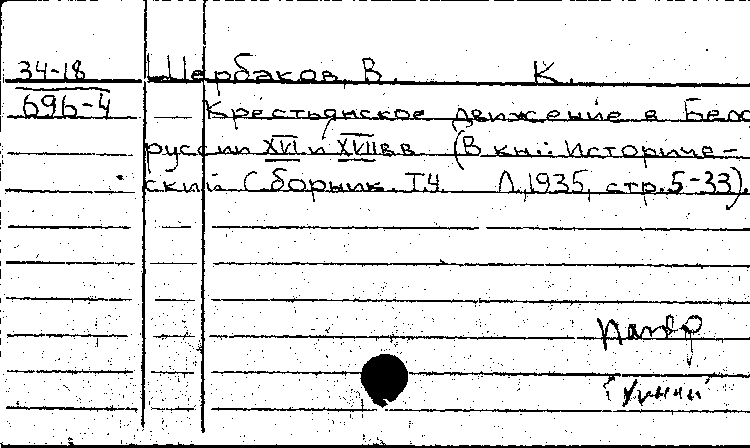 34-18 Щербаков, В. К.
696-4 Крестьянское движение в Бело
руссии XVI и XVII в в (В кн.: Историче-
ский Сборник. Т.4. Л., 1935, стр. 5-33).